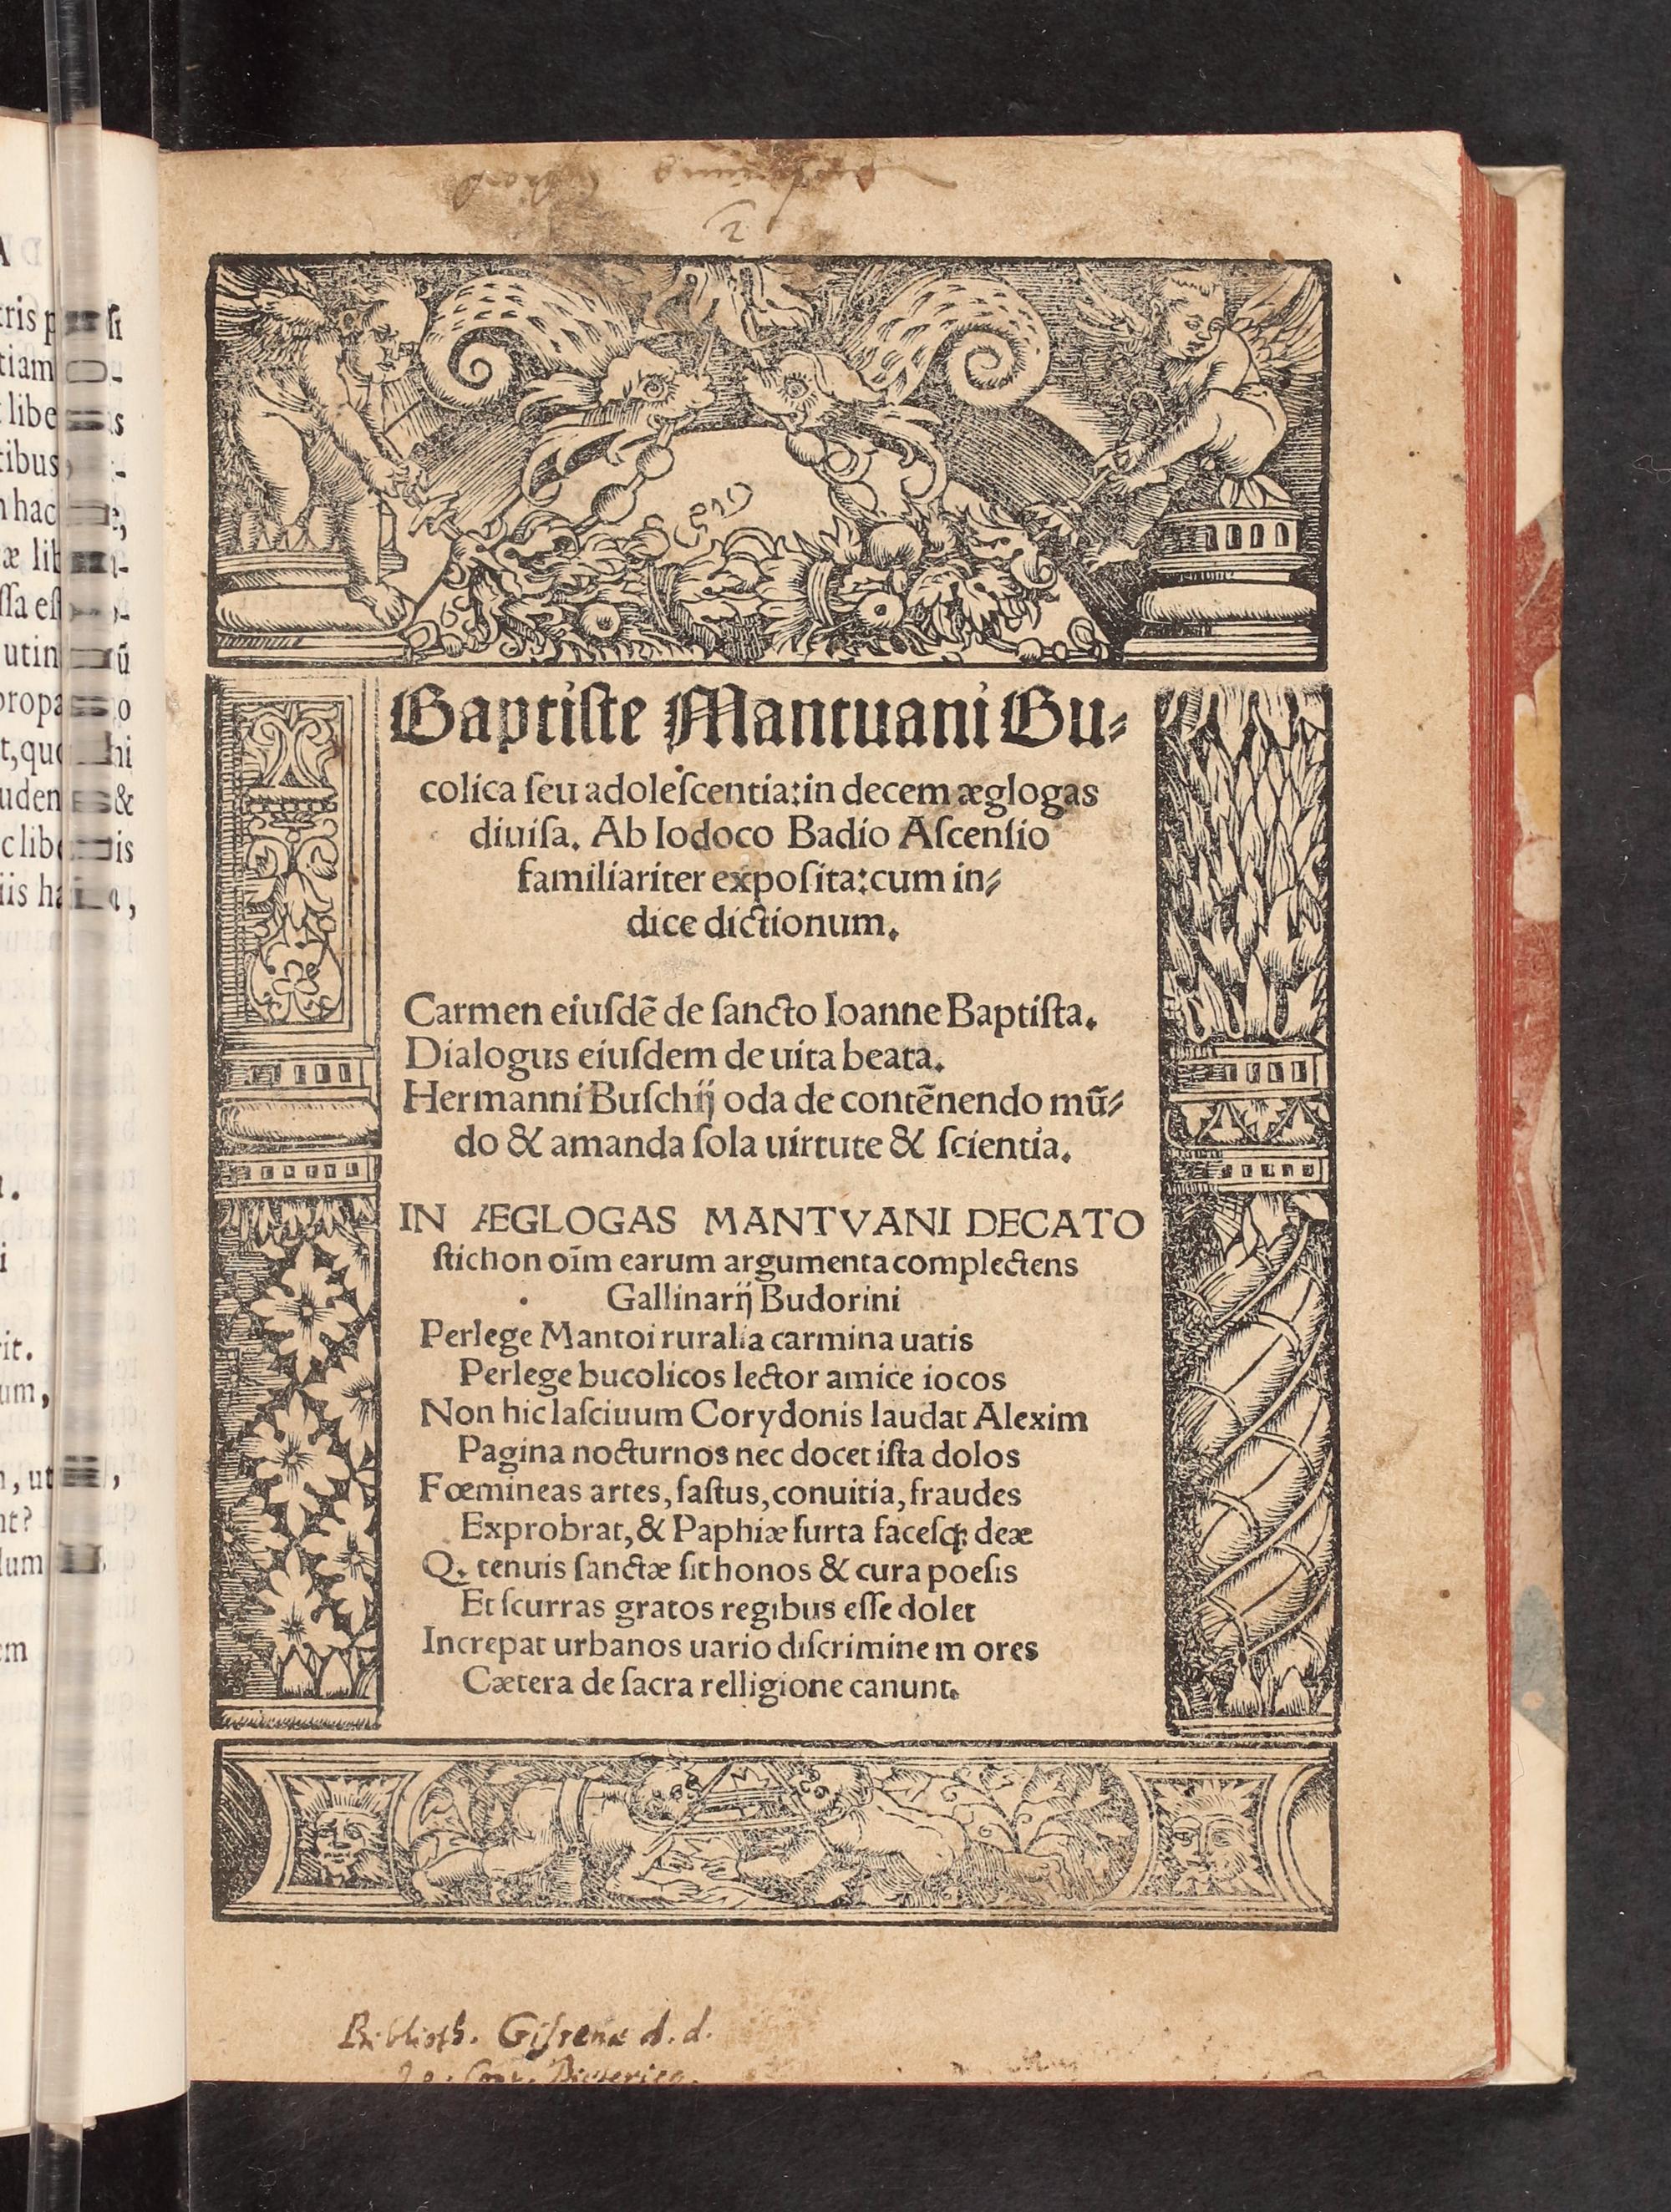 Baptiste Mantuani Bu⸗
colica ſeu adoleſcentia: in decem æglogas
diuiſa. Ab Iodoco Badio Aſcenſio
familiariter expoſita: cum in⸗
dice dictionum.
Carmen eiuſdē de ſancto Ioanne Baptiſta.
Dialogus eiuſdem de uita beata.
Hermanni Buſchij oda de contēnendo mū⸗
do & amanda ſola uirtute & ſcientia.
IN ÆGLOGAS MANTVANI DECATO
ſtichon oīm earum argumenta complectens
Gallinarij Budorini
Perlege Mantoi ruralia carmina uatis
Perlege bucolicos lector amice iocos
Non hic laſciuum Corydonis laudat Alexim
Pagina nocturnos nec docet iſta dolos
Fœmineas artes, faſtus, conuitia, fraudes
Exprobrat, & Paphiæ furta faceſq; deæ
Q. tenuis ſanctæ ſit honos & cura poeſis
Et ſcurras gratos regibus eſſe dolet
Increpat urbanos uario diſcrimine mores
Cætera de ſacra relligione canunt.
Biblioth. Giſſenæ d. d.